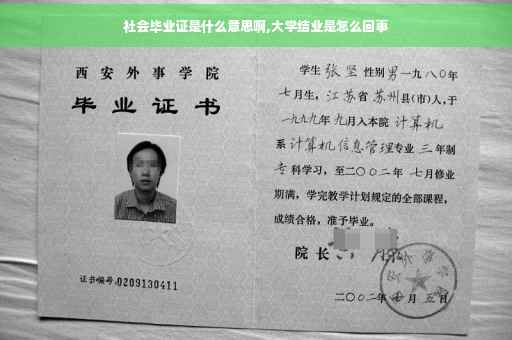 社会毕业证是什么意思啊,大学结业是怎么回事
西安外事学院
毕业证书
证书编号:0209130411
学生 张坚 性别 男 一九八〇年
七月生, 江苏省 苏州县(市)人,于
一九九九年 九月入本院 计算机
系 计算机信息管理 专业 三 年制
专 科学习,至二〇〇二年 七月修业
期满,学完教学计划规定的全部课程,
成绩合格,准予毕业。
院长
二〇〇二年 七 月 五 日